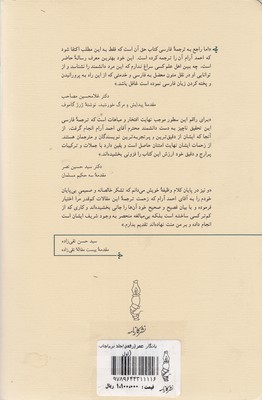 «اما راجع به ترجمهٔ فارسی کتاب حق آن است که فقط به این مطلب اکتفا شود
که احمد آرام آن را ترجمه کرده است. این خود بهترین معرف رسالهٔ حاضر
است. چه بین اهل علم کسی سراغ ندارم که این مرد دانشمند را نشناسد و از
توانایی او در نقل متون مفصل به فارسی و خدمتی که از این راه به پرورانیدن
و پخته کردن زبان فارسی نموده است غافل باشد.»
دکتر غلامحسین مصاحب
مقدمهٔ پیدایش و مرگ خورشید، نوشتهٔ ژرژ گاموف
«برای راقم این سطور موجب نهایت افتخار و مباهات است که ترجمهٔ فارسی
این تحقیق ناچیز به دست دانشمند محترم آقای احمد آرام انجام گرفت. از
آنجا که ایشان از دقیق‌ترین و پرتجربه‌ترین نویسندگان و مترجمان هستند،
از زحمات ایشان نهایت امتنان حاصل است و یقین دارد با جملات و ترکیبات
پرارج و دقیق خود ارزش این کتاب را فزونی بخشیده‌اند.»
دکتر سید حسین نصر
مقدمهٔ سه حکیم مسلمان
«و نیز در پایان کلام وظیفهٔ خویش می‌دانم که تشکر خالصانه و صمیمی بی‌پایان
خود را به آقای احمد آرام که زحمت ترجمهٔ این مقالات کم‌قدر مرا اختیار
فرموده و با بیان فصیح و صحیح خود آن‌ها را جانی بخشیده‌اند و کاری که از
کم‌تر کسی ساخته است بلکه بی‌مبالغه منحصر به وجود شریف ایشان است
انجام داده و بر من منت نهاده‌اند تقدیم بدارم.»
سید حسن تقی‌زاده
مقدمهٔ بیست مقالهٔ تقی‌زاده
نشر کارنامه
یادگار عمر
9789643211116
قیمت: ۱،۱۰۰،۰۰۰ ریال